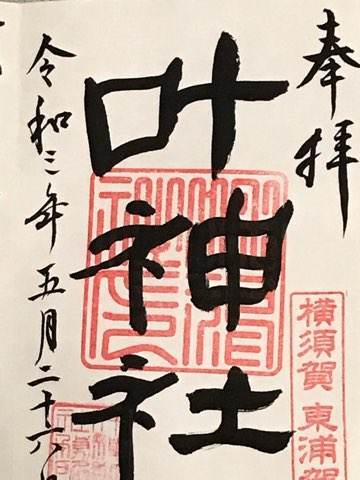 奉拝
横須賀 東浦賀
叶神社
令和三年五月二十六日